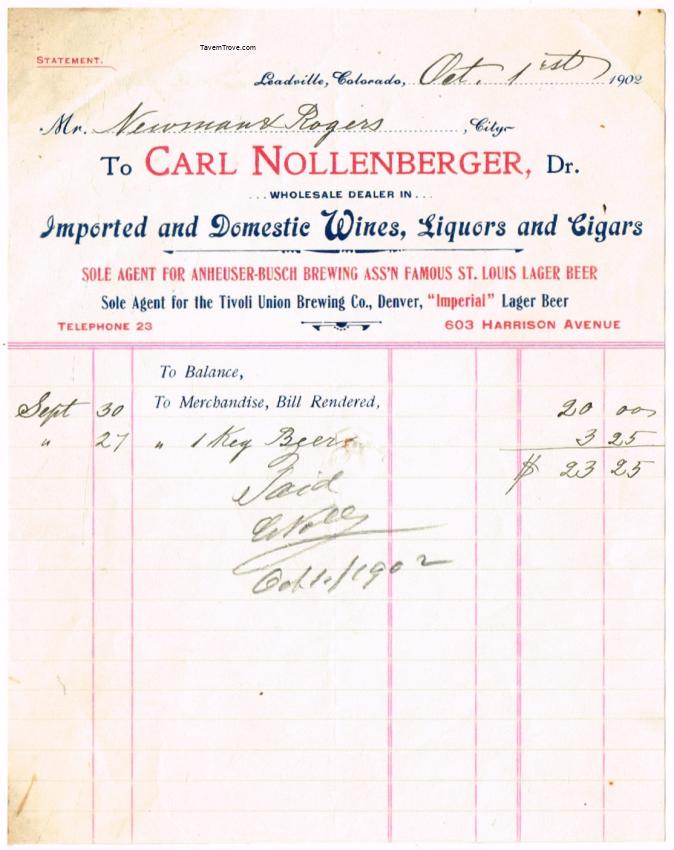 TavernTrove.com
STATEMENT.
Leadville, Colorado, Oct. 1st 1902
Mr. Newman & Rogers, City
To CARL NOLLENBERGER, Dr.
...WHOLESALE DEALER IN...
Imported and Domestic Wines, Liquors and Cigars
SOLE AGENT FOR ANHEUSER-BUSCH BREWING ASS'N FAMOUS ST. LOUIS LAGER BEER
Sole Agent for the Tivoli Union Brewing Co., Denver, "Imperial" Lager Beer
TELEPHONE 23 603 HARRISON AVENUE
To Balance,
Sept 30 To Merchandise, Bill Rendered, 20 00
" 27 " 1 Keg Beer 3 25
$ 23 25
Paid
C Nolly
Oct 1./1902